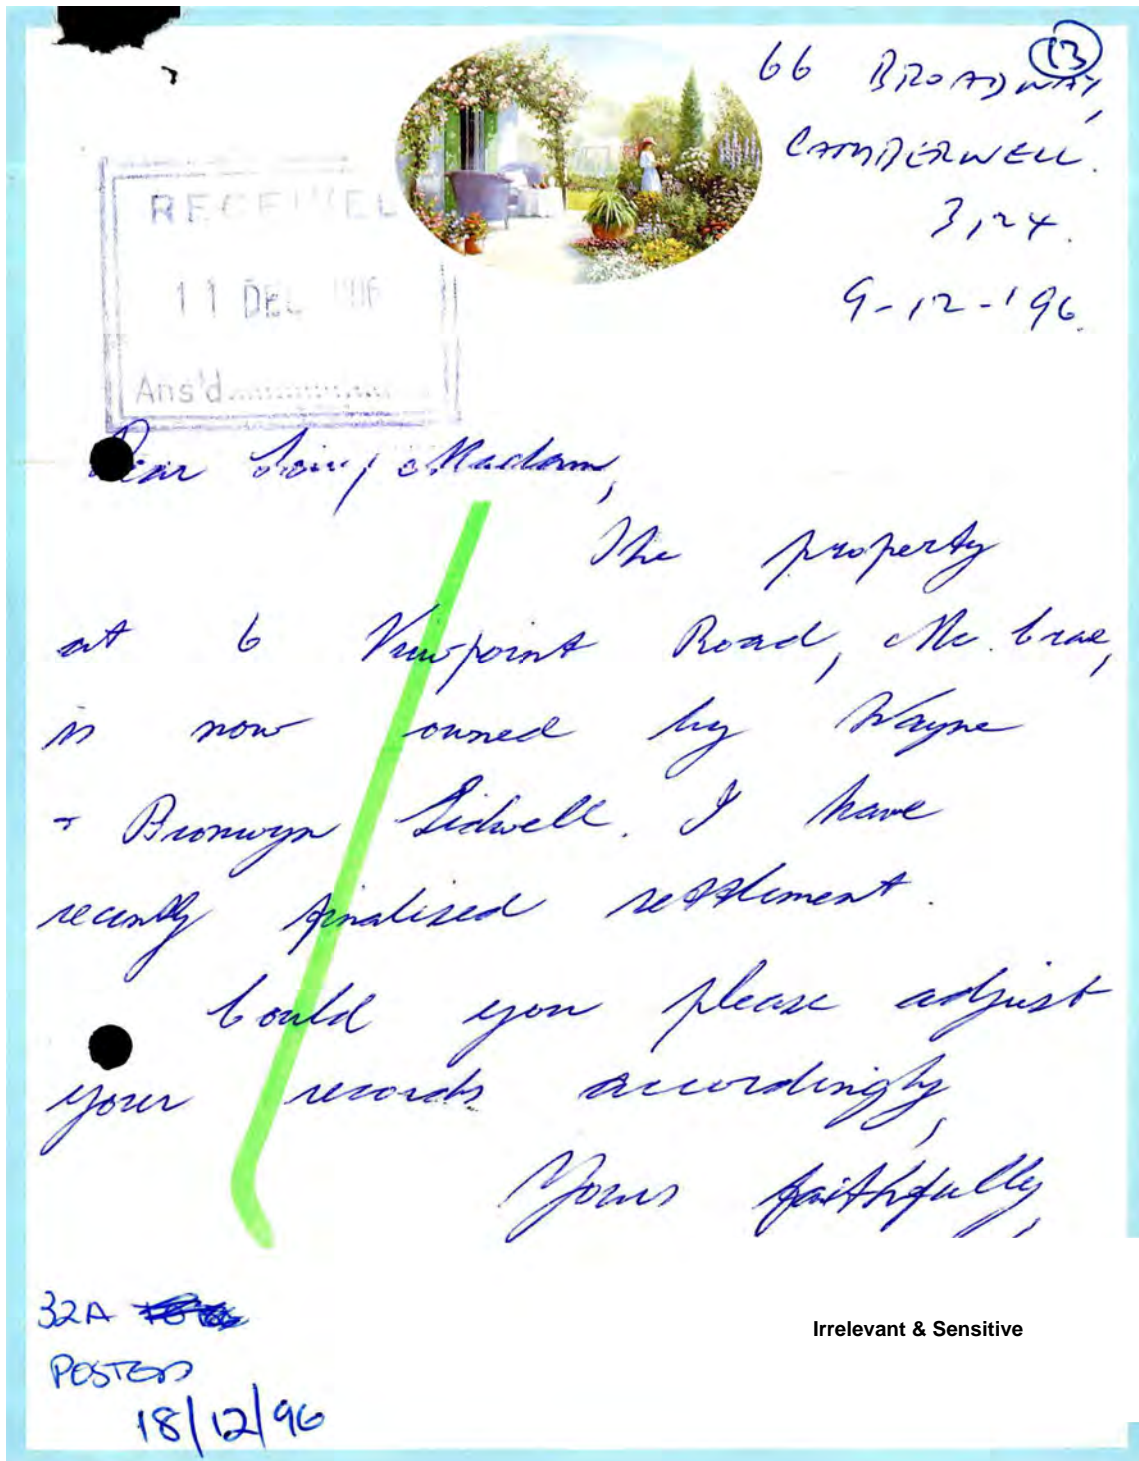 13
66 BROADWAY,
CAMBERWELL.
3124.
9-12-'96.
RECEIVED
11 DEC 1996
Ans'd
Dear Sir/Madam,
The property
at 6 Viewpoint Road, Mc.Crae,
is now owned by Wayne
+ Bronwyn Sidwell. I have
recently finalised settlement.
Could you please adjust
your records accordingly,
Yours faithfully,
32A
POSTED
18/12/96
Irrelevant & Sensitive